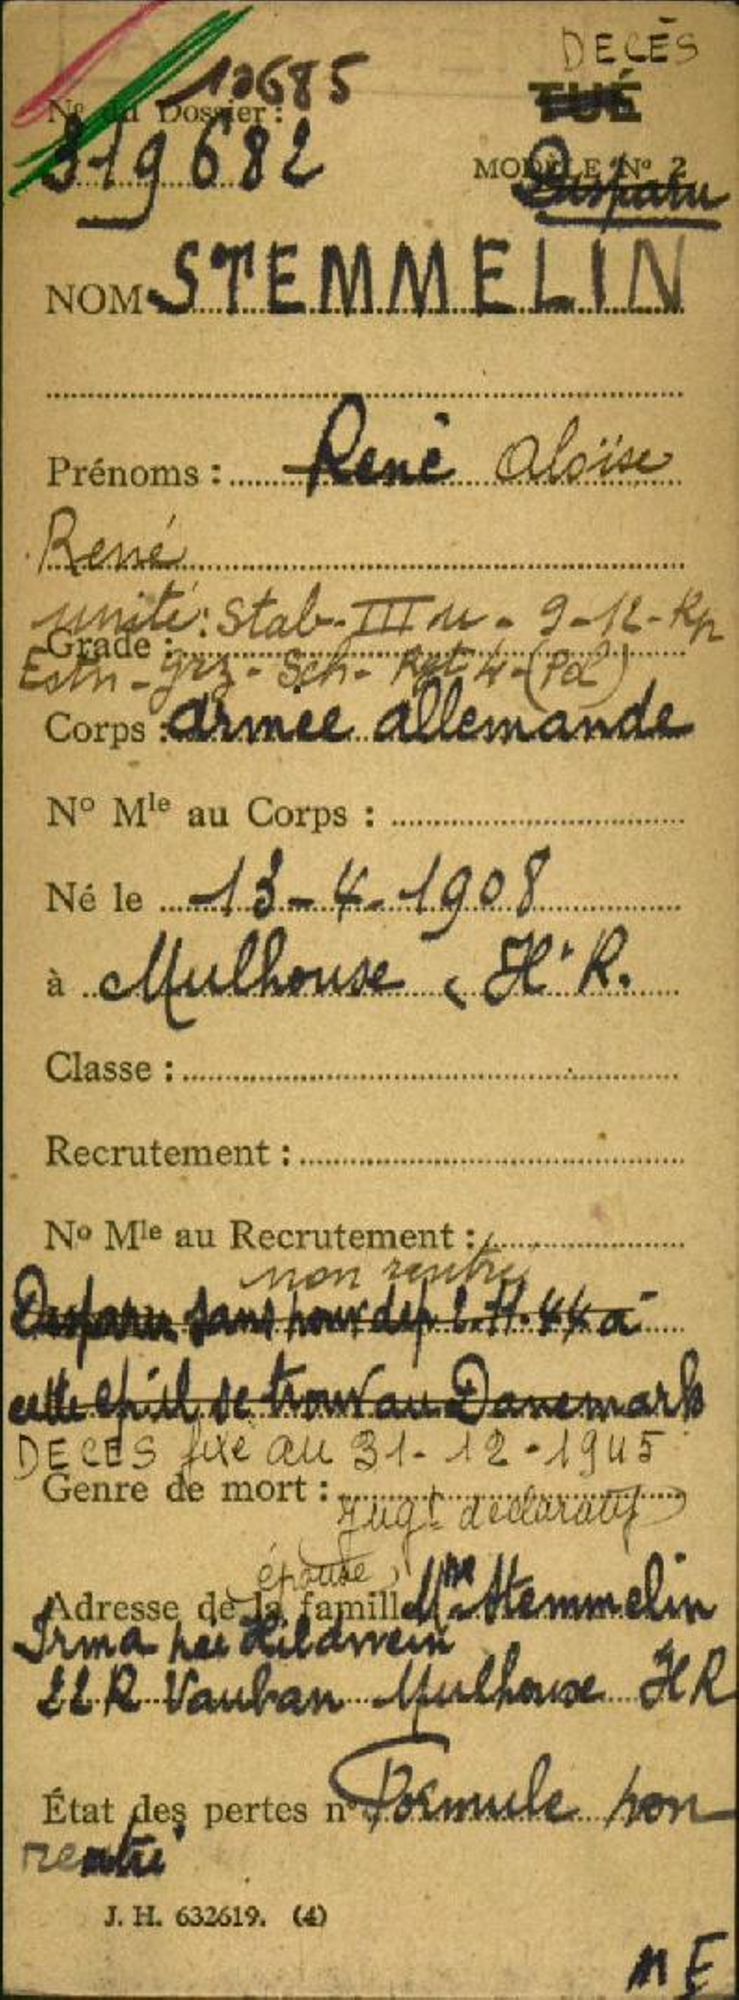 DECÈS
10685
TUÉ
N° du Dossier :
319682
MODÈLE N° 2
Disparu
NOM STEMMELIN
Prénoms : René Aloïse
René
unité: Stab-III u - 9-12-Kp
Grade :
Estn - grz - Sch - Rgt 4 - (Pol)
Corps : armée allemande
N° Mle au Corps :
Né le 13-4-1908
à Mulhouse Ht R.
Classe :
Recrutement :
N° Mle au Recrutement :
non rentré
Disparu sans nouv dep 2.11.44 à
cette ép il se trouv au Danemark
DECES fixé au 31-12-1945
Genre de mort :
Jugt déclaratif
épouse
Adresse de la famille Me Stemmelin
Irma née Hildwein
22 R Vauban Mulhouse HR
État des pertes n° Formule non
rentré
J. H. 632619. (4)
ME